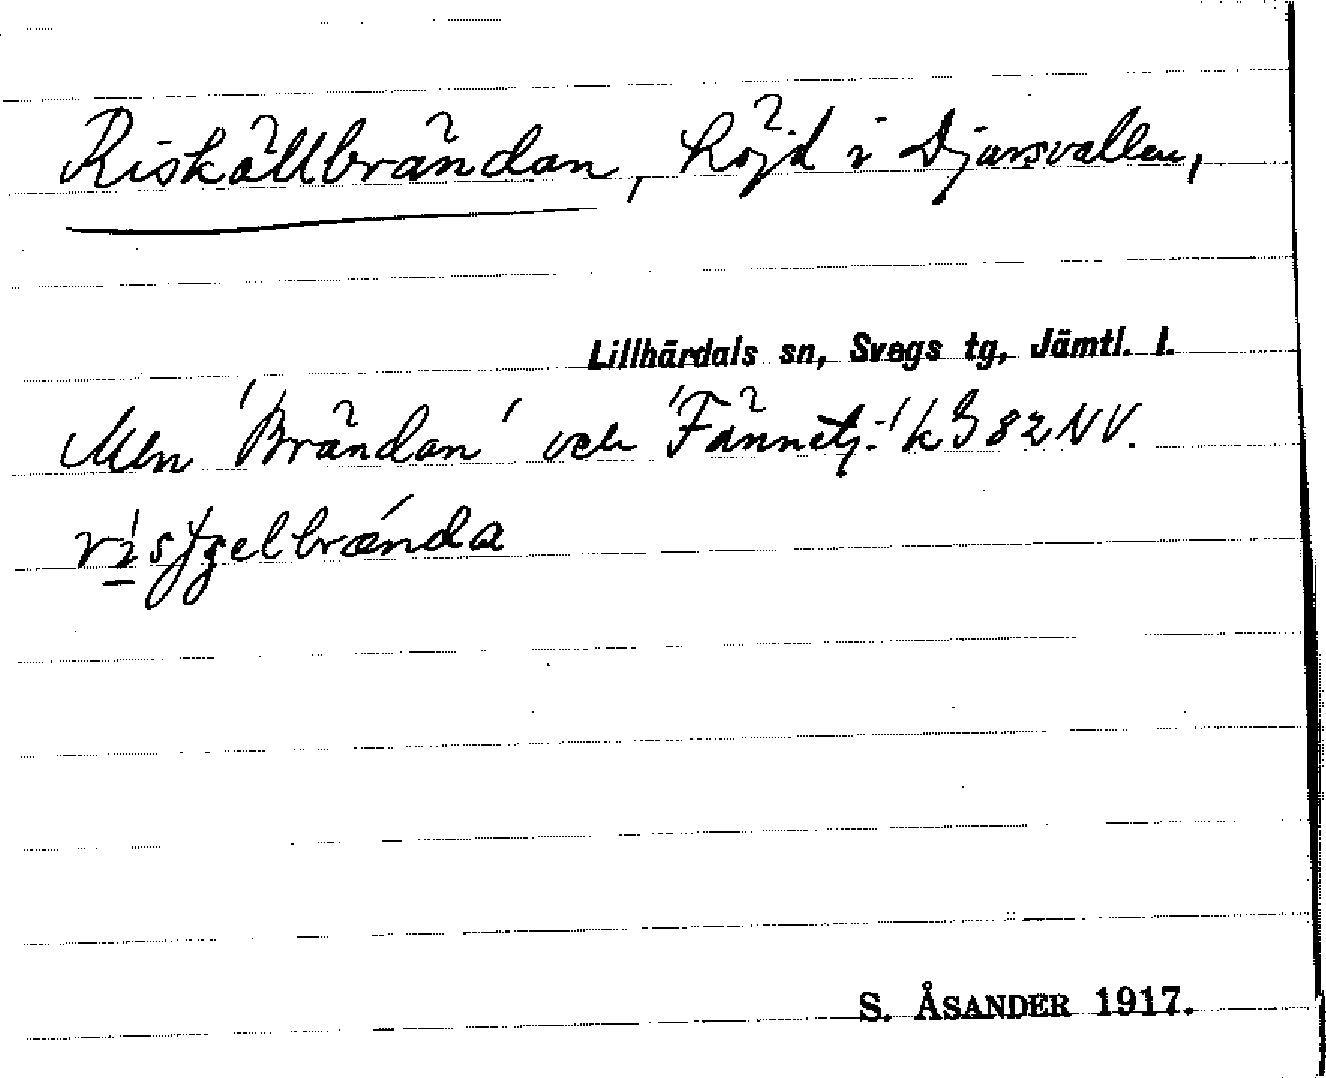 Riskällbrändan, höjd i Djursvallen,
Lillhärdals sn, Svegs tg, Jämtl. l.
Mln 'Brändan' och 'Fännetj:' k G 82 NV.
S. ÅSANDER 1917.